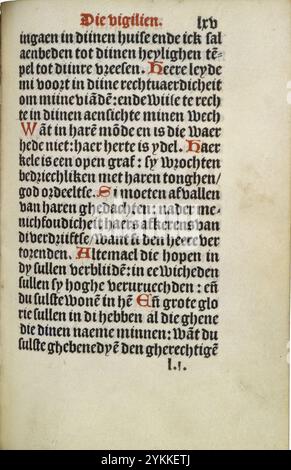 Die vigilien. lxv
ingaen in diinen huise ende ick sal
aenbeden tot diinen heylighen tē-
pel tot diinre vreesen. Heere leyde
mi voort in dine rechtuaerdicheit
om miine viādē: ende wiise te rech
te in dinen aensichte minen wech
Wāt in harē mōde en is die waer
hede niet: haer herte is ydel. Haer
kele is een open graf: sy wrochten
bedriechliken met haren tonghen/
god ordeeltse. Si moeten afvallen
van haren ghedachten: nader me-
nichfoudicheit haers afkerens van
di verdriiftse/ want si den heere ver
torenden. Altemael die hopen in
dy sullen verbliidē: in eewicheden
sullen sy hoghe veruruechden: eñ
du sulste wonē in hē Eñ grote glo
rie sullen in di hebben al die ghene
die dinen naeme minnen: wāt du
sulste ghebenedyē den gherechtigē
l.i.
alamy
Image ID: 2YKKETJ
www.alamy.com